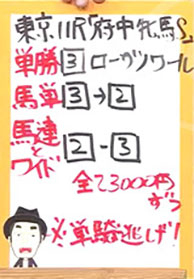 東京11R「府中牝馬S」
単勝 3 ローザンワール
馬単 3→2
馬連とワイド 2-3
全て3000円ずつ
※単騎逃げ!